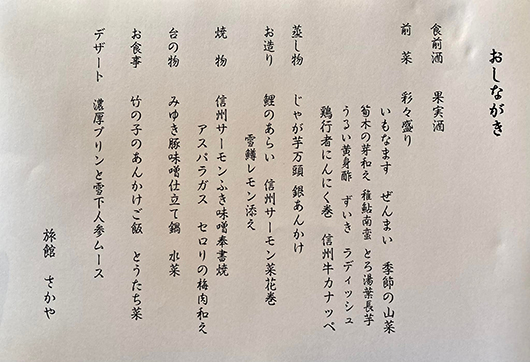 おしながき
食前酒　果実酒
前　菜　彩々盛り
いもなます　ぜんまい　季節の山菜
筍木の芽和え　稚鮎南蛮　とろ湯葉長芋
うるい黄身酢　ずいき　ラディッシュ
鶏行者にんにく巻　信州牛カナッペ
蒸し物　じゃが芋万頭　銀あんかけ
お造り　鯉のあらい　信州サーモン菜花巻
雪鱒レモン添え
焼　物　信州サーモンふき味噌奉書焼
アスパラガス　セロリの梅肉和え
台の物　みゆき豚味噌仕立て鍋　水菜
お食事　竹の子のあんかけご飯　とうたち菜
デザート　濃厚プリンと雪下人参ムース
旅館　さかや